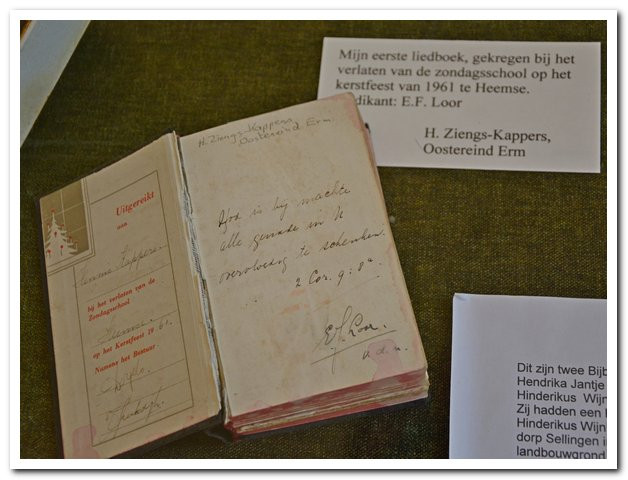 Mijn eerste liedboek, gekregen bij het
verlaten van de zondagsschool op het
kerstfeest van 1961 te Heemse.
dikant: E.F. Loor
H. Ziengs-Kappers,
Oostereind Erm
H. Ziengs-Kappers
Oostereind Erm.
God is bij machte
alle genade in U
overvloedig te schenken.
2 Cor. 9:8a
E.F. Loor.
v.d.m.
Uitgereikt
aan
Kappers
bij het verlaten van de
Zondagsschool
Heemse
op het Kerstfeest 1961.
Namens het Bestuur
Dit zijn twee Bijb
Hendrika Jantje
Hinderikus Wijn
Zij hadden een
Hinderikus Wijn
dorp Sellingen i
landbouwgrond